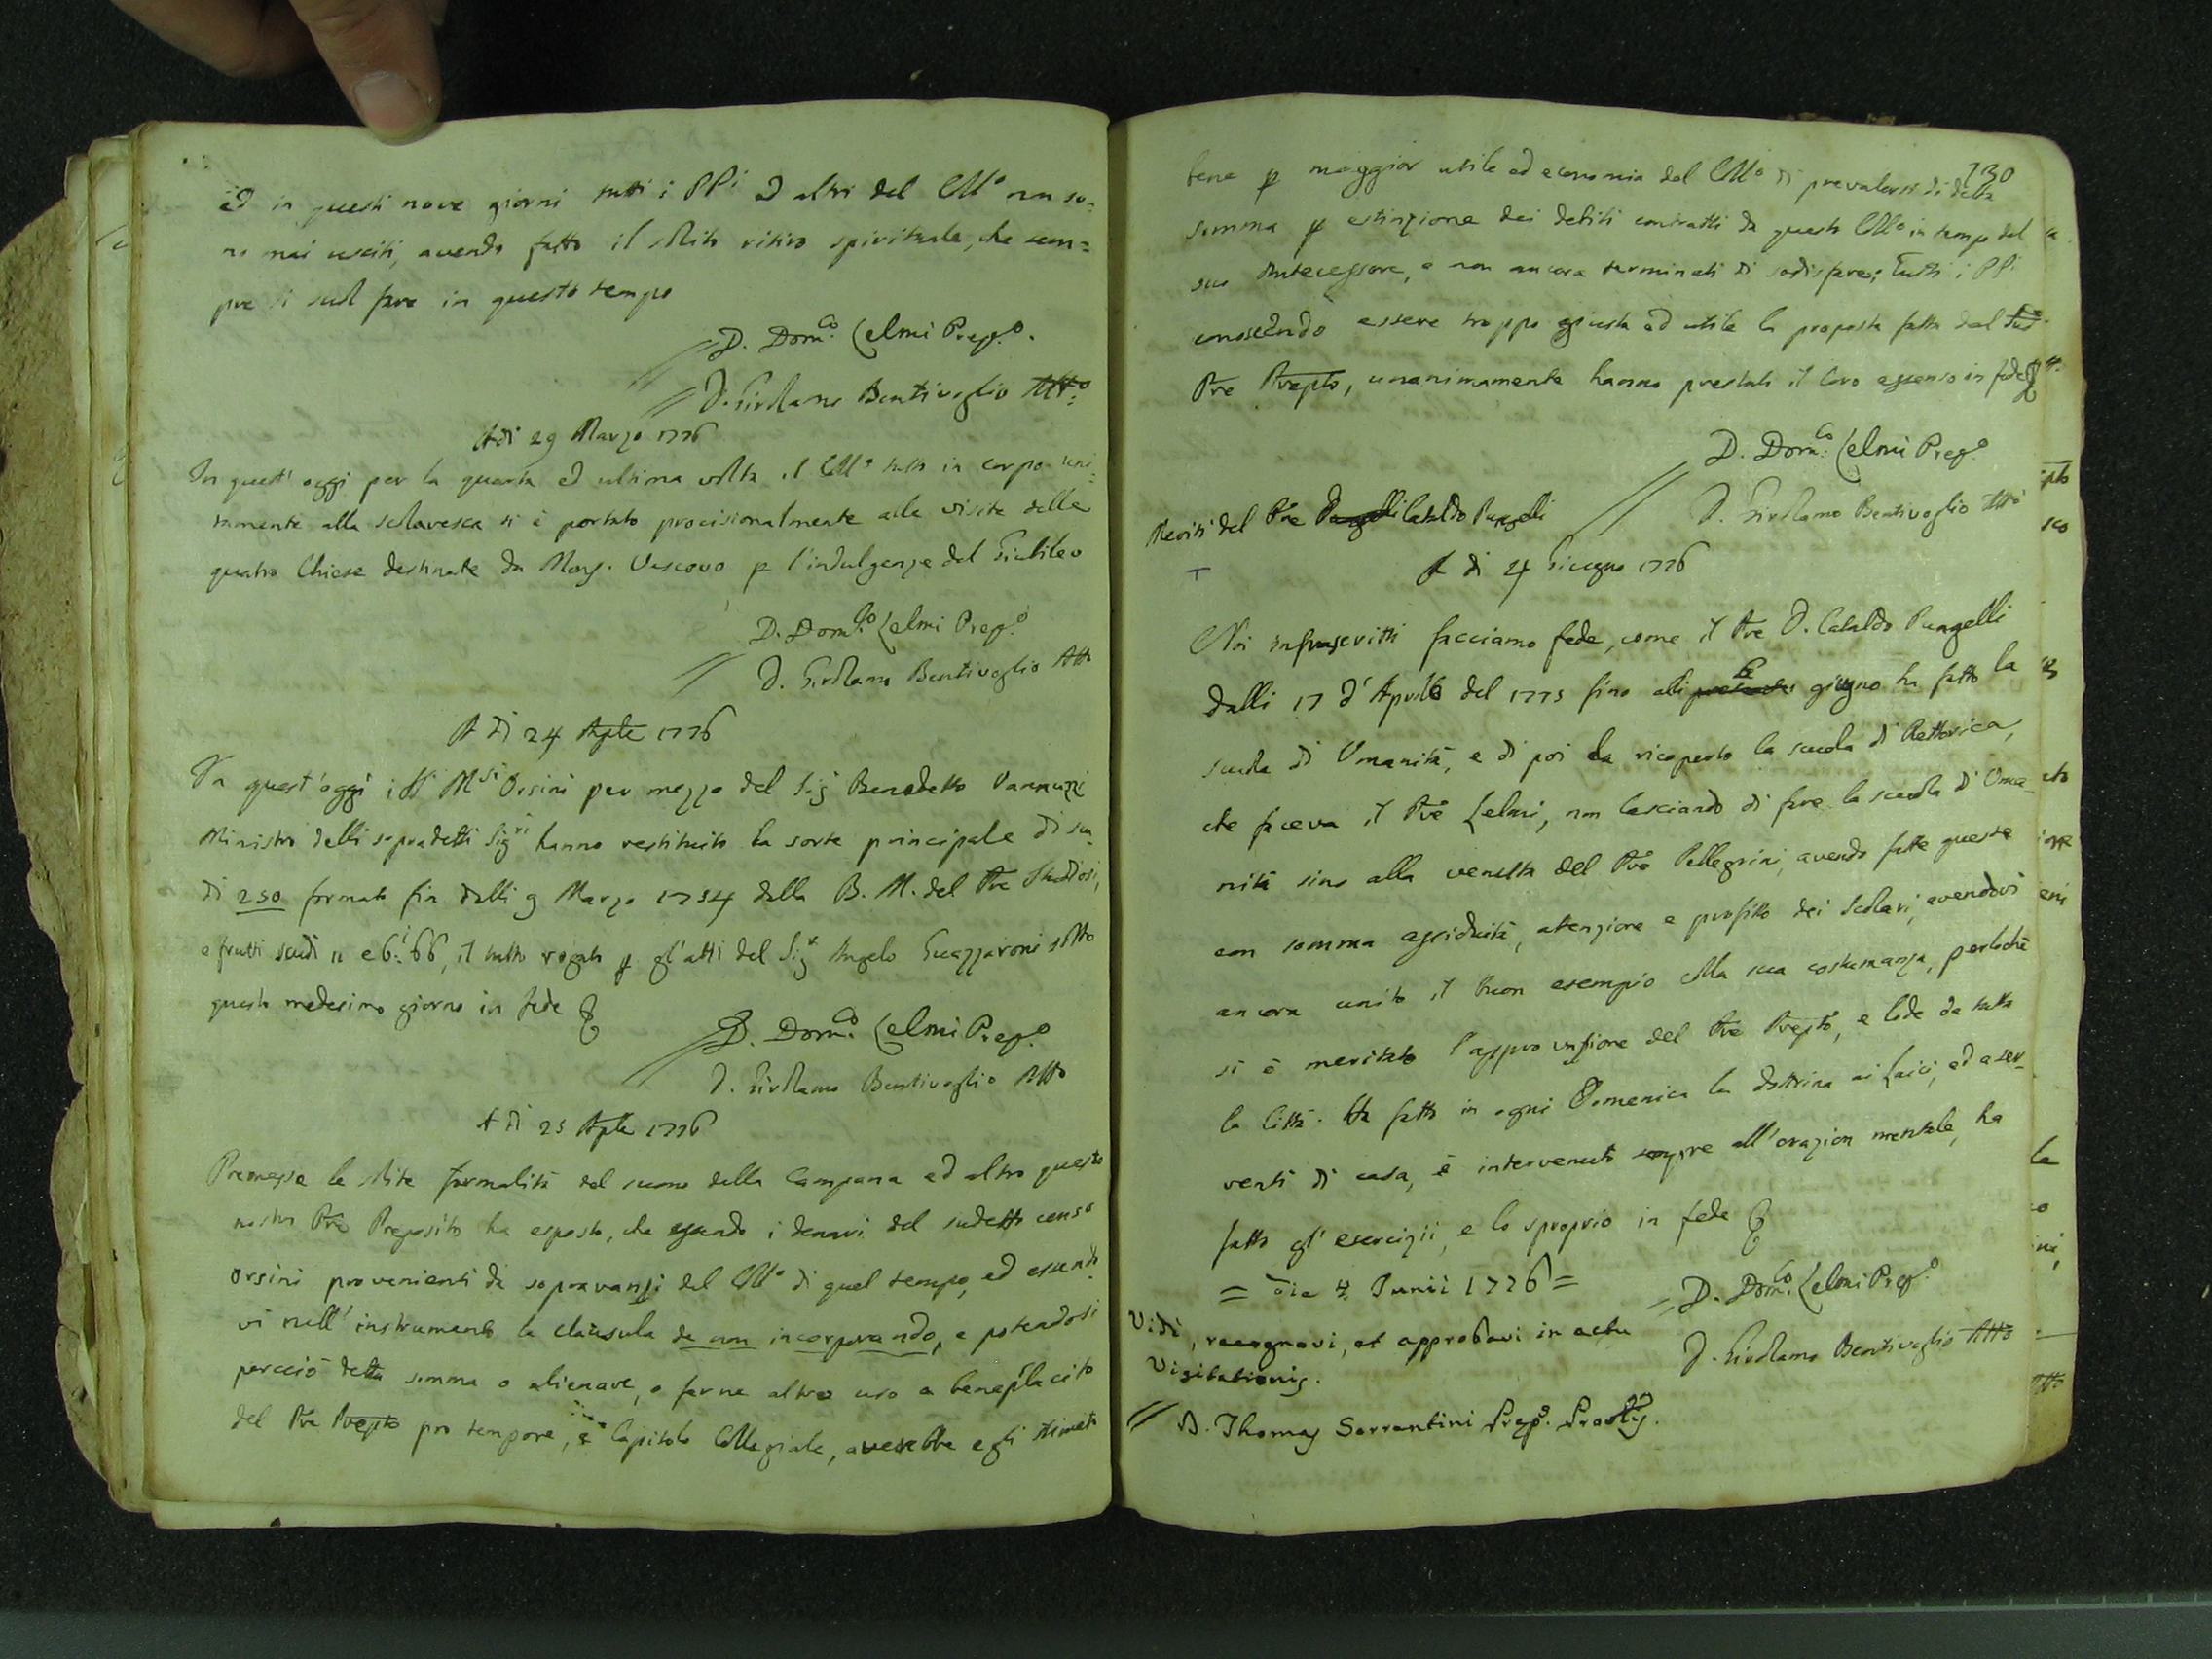 ed in questi nove giorni tutti i PPi ed altri del Coll° non so-
no mai usciti, avendo fatto il solito ritiro spirituale, che sem=
pre si suol fare in questo tempo
D. Dom.co Lelmi Prep.o.
D. Girolamo Bentivoglio Att.o
A di 29 Marzo 1776
In quest'oggi per la quarta ed ultima volta il Coll° tutto in corpo uni-
tamente alla scolaresca si è portato processionalmente alle visite delle
quatro Chiese destinate da Mons. Vescovo p l'indulgenze del Giubileo
D. Dom.co Lelmi Prep.o
D. Girolamo Bentivoglio Atto
A di 24 Aple 1776
In quest'oggi i SS Msi Orsini per mezzo del Sig Benedetto Vannuzzi
Ministro delli sopradetti Sigri hanno restituito la sorte principale di scu-
di 250 formato fin dalli 9 Marzo 1754 dalla B. M. del Pre Studiosi,
e frutti scudi 11 e 6:66, il tutto rogato p gl'atti del Sigr Angelo Guazzaroni sotto
questo medesimo giorno in fede
D. Dom.co Lelmi Prep.o
D. Girolamo Bentivoglio Atto
A di 25 Aple 1776
Premesse le solite formalità del suono della Campana ed altro questo
nostro Pre Preposito ha esposto, che essendo i denari del sudetto censo
Orsini provenienti da sopravanzi del Coll° di quel tempo, ed essendo-
vi nell'instrumento la clausula de non incorporando, e potendosi
perciò detta somma o alienare, o farne altro uso a beneplacito
del Pre Prepto pro tempore, e Capitolo Collegiale, averebbe egli stimato
130
bene p maggior utile ed economia del Coll° di prevalersi di detta
somma p estinzione dei debiti contratti da questo Coll° in tempo del
suo Antecessore, e non ancora terminati di sodisfare; Tutti i PPi
conoscendo essere troppo giusta ed utile la proposta fatta dal sudo
Pre Prepto, unanimamente hanno prestato il loro assenso in fede
D. Dom.co Lelmi Prep.o
D. Girolamo Bentivoglio Atto
Meriti del Pre Cataldo Pungelli
A di 24 Giugno 1776
Noi infrascritti facciamo fede, come il Pre D. Cataldo Pungelli
dalli 17 d'Aprile del 1775 fino alli giugno ha fatto la
scuola di Umanità, e di poi ha ricoperto la scuola di Rettorica,
che faceva il Pre Lelmi, non lasciando di fare la scuola d'Uma-
nità sino alla venuta del Pre Pellegrini, avendo fatte queste
con somma assiduità, atenzione e profitto dei Scolari, avendovi
ancora unito il buon esempio colla sua costumanza, perlochè
si è meritato l'approvazione del Pre Prepto, e lode da tutta
la Città. Ha fatto in ogni Domenica la dottrina ai Laici, ed a ser-
venti di casa, è intervenuto sempre all'orazion mentale, ha
fatto gl'esercizii, e lo sproprio in fede
= Die 4. Junii 1776 =
D. Dom.co Lelmi Prep.o
Vidi, recognovi, et approbavi in actu
D. Girolamo Bentivoglio Atto
Visitationis.
D. Thomas Sorrentini Prep. Provlis.